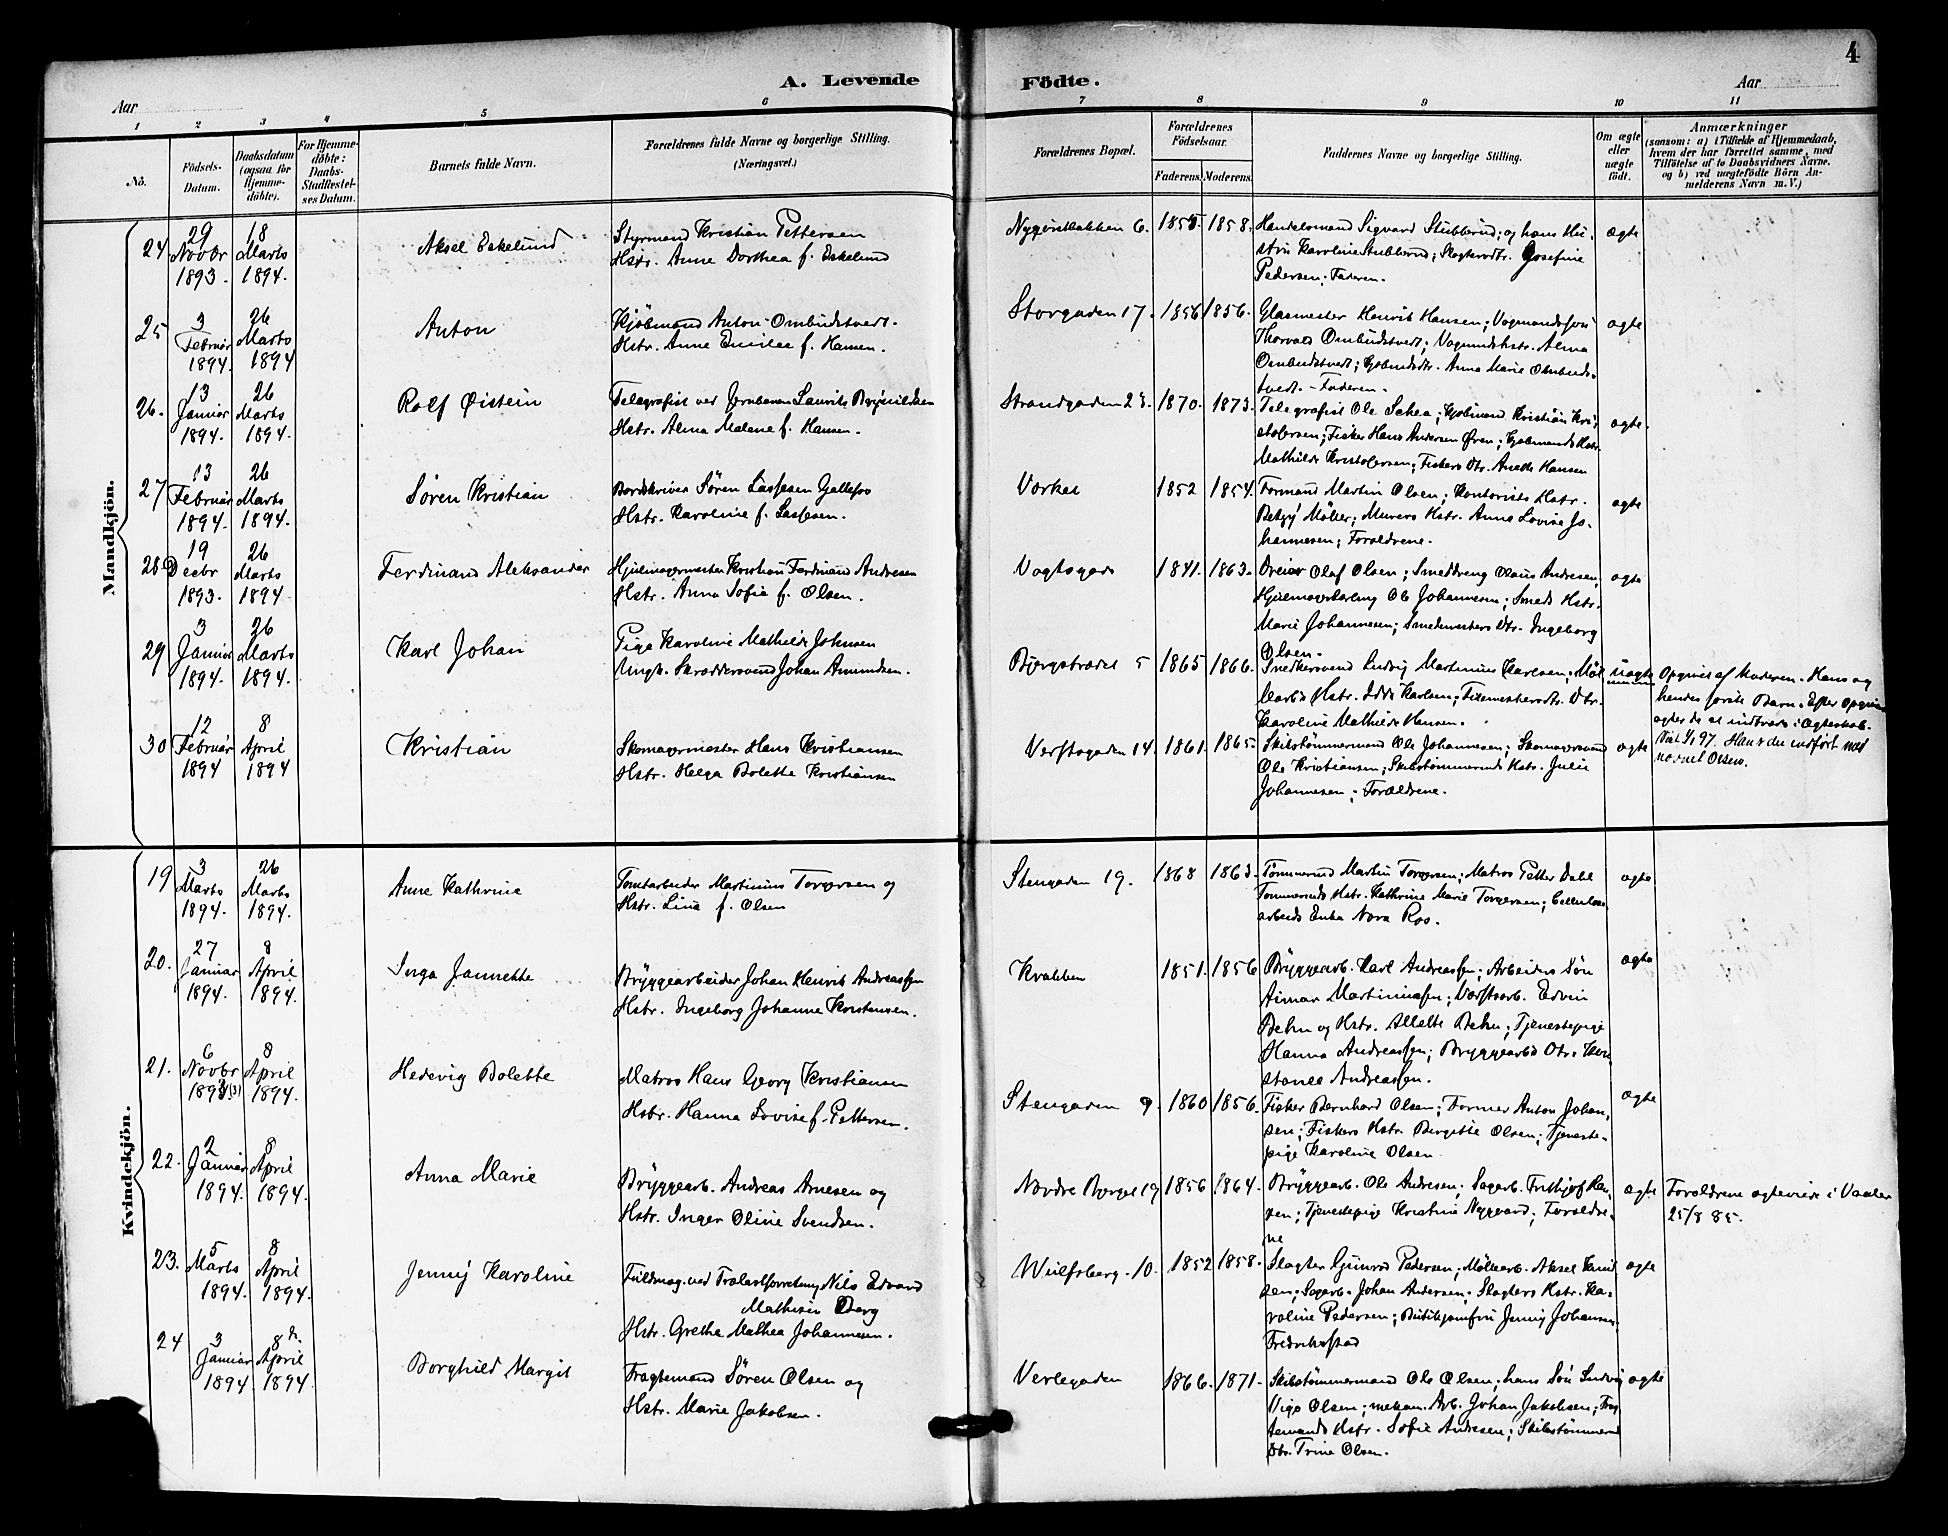 4
A. Levende Födte.
Aar
Aar
1 2 3 4 5 6 7 8 9 10 11
No.
Födsels-
Datum.
Daabsdatum
(ogsaa for
Hjemme-
döbte).
For Hjemme-
döbte:
Daabs-
Stadfæstel-
ses Datum.
Barnets fulde Navn.
Forældrenes fulde Navne og borgerlige Stilling.
(Næringsvei.)
Forældrenes Bopæl.
Forældrenes
Födselsaar.
Faderens. Moderens.
Faddernes Navne og borgerlige Stilling.
Om ægte
eller
uægte
født.
Anmærkninger
(saasom: a) i Tilfælde af Hjemmedaab,
hvem der har forrettet samme, med
Tilföielse af to Daabsvidners Navne.
og b) ved uægtefödte Börn An-
melderens Navn m.V.)
Mandkjön.
24
29
Novbr
1893.
18
Marts
1894.
Aksel Eskelund
Styrmand Kristian Pettersen
Hstr. Anne Dorthea f. Eskelund
6. 1858.
Handelsmand Sigvard Stubberud; og hans Hu-
stru Karoline Stubberud; Josefine
Pedersen; Faderen.
ægte
25
3
Februar
1894.
26
Marts
1894
Anton
Kjöbmand Anton Ombudstvedt.
Hstr. Anne Emilie f. Hansen.
Storgaden 17. 1856 1856.
Glasmester Henrik Hansen;
Thorvald Ombudstvedt; Alma
Ombudstvedt; Anna Marie Ombuds-
tvedt. - Faderen.
ægte
26.
13
Januar
1894.
26
Marts
1894.
Rolf Øistein
Telegrafist ved Jernbanen Laurits Brynildsen
Hstr. Alma Malene f. Hansen.
Strandgaden 23. 1870. 1873.
Telegrafist Ole Schea; Kjøbmand Kristian Kri-
stofersen; Fisker Hans Andersen Øren; Kjøbmands Hstr.
Mathilde Kristofersen; Fiskers Dtr. Anette Hansen
ægte.
27
13
Februar
1894.
26
Marts
1894.
Søren Kristian
Bordskriver Søren Lassesen
Hstr. Karoline f. Lassesen.
Værket 1852 1854.
Formand Martin Olsen; Kontorists Hstr.
Betzy Möller; Murers Hstr. Anna Lovise Jo-
hannesen; Forældrene.
ægte
28
19
Decbr
1893.
26
Marts
1894.
Ferdinand Aleksander
Hjulmagermester Kristian Ferdinand Andresen
Hstr. Anna Sofie f. Olsen.
Vogtsgade 1841. 1863.
Dreier Olaf Olsen; Smeddreng Olaus Andresen;
Hjulmagerlærling Ole Johannesen; Smeds Hstr.
Marie Johannesen; Smedemesters Dtr. Ingeborg
Olsen.
ægte
29
3
Januar
1894.
26
Marts
1894.
Karl Johan
Pige Karoline Mathilde Johnsen
Ungk. Skræddersvend Johan Amundsen.
Bjergstrædet 5 1865 1866.
Snedkersvend Ludvig Martinius Karlsen; Möl-
learb's Hstr. Idda Karlsen; Dtr.
Karoline Mathilde Hansen.
uægte
Opgivet af Moderen. Hans og
hendes første Barn. Efter Opgivende
agter de at indtræde i Ægteskab.
1/1 97. Han er du indført med
navnet Olsen.
30
12
Februar
1894
8
April
1894
Kristian
Skomagermester Hans Kristiansen
Hstr. Helga Bolette Kristiansen
Verftsgaden 14. 1861. 1865.
Skibstømmermand Ole Johannesen; Skomagersvend
Ole Kristiansen; Skibstømmermands Hstr. Julie
Johannesen; Forældrene.
ægte
Kvindekjön.
19
3
Marts
1894.
26
Marts
1894.
Anne Kathrine
Tomtarbeider Martinius Torgersen og
Hstr. Lina f. Olsen
Stengaden 19. 1868 1863.
Tømmermd Martin Torgersen; Matros Petter Dahl
Tømmermds Hstr. Kathrine Marie Torgersen; Cellulose-
arbeids Enke Nora Roo.
ægte
20.
27
Januar
1894.
8
April
1894.
Inga Jannette
Bryggearbeider Johan Henrik Andreassen
Hstr. Ingeborg Johanne Kristensen.
Krabben 1851. 1856
Bryggearb. Karl Andreassen; Arbeiders Søn
Aimar Martiniussen; Værftsarb. Edvin
Behn og Hstr. Allette Behn; Tjenestepige
Hanna Andreassen; Bryggearbs Dtr. Kon-
stance Andreassen.
ægte
21.
6
Novbr
1893 (3)
8
April
1894.
Hedevig Bolette
Matros Hans Georg Kristiansen
Hstr. Hanna Lovise f. Pettersen.
Stengaden 9. 1860 1856.
Fisker Bernhard Olsen; Former Anton Johan-
sen; Fiskers Hstr. Bergitte Olsen; Tjeneste-
pige Karoline Olsen.
ægte
22.
2
Januar
1894.
8
April
1894.
Anna Marie
Bryggearb. Andreas Arnesen og
Hstr. Inger Oline Svendsen.
Nordre Berget 19 1856 1864.
Bryggearb. Ole Andresen; Sagarb. Frithjof Han-
sen; Tjenestepige Kristine Nygaard; Forældre-
ne
ægte
Forældrene ægteviede i Vaaler
25/8 85.
23.
5
Marts
1894.
8
April
1894.
Jenny Karoline
Fuldmæg. ved Trælastforretning Nils Edvard
Mathisen Berg
Hstr. Grethe Mathea Johannesen.
Wulfsberg. 10. 1852 1858.
Slagter Gunerd Pedersen; Møllearb. Aksel Knud-
sen; Sagarb. Johan Andersen; Slagters Hstr. Ka-
roline Pedersen; Butikjomfru Jenny Johansen,
Fredrikstad
ægte
24
3
Januar
1894.
8
April
1894.
Borghild Margit
Fragtemand Søren Olsen og
Hstr. Marie Jakobsen.
Verlegaden 1866. 1871.
Skibstømmermand Ole Olsen; hans Søn Ludvig
Vigo Olsen; mekan. Arb. Johan Jakobsen; Frag-
temands Hstr. Sofie Andresen; Skibstømmermds
Dtr. Trine Olsen.
ægte